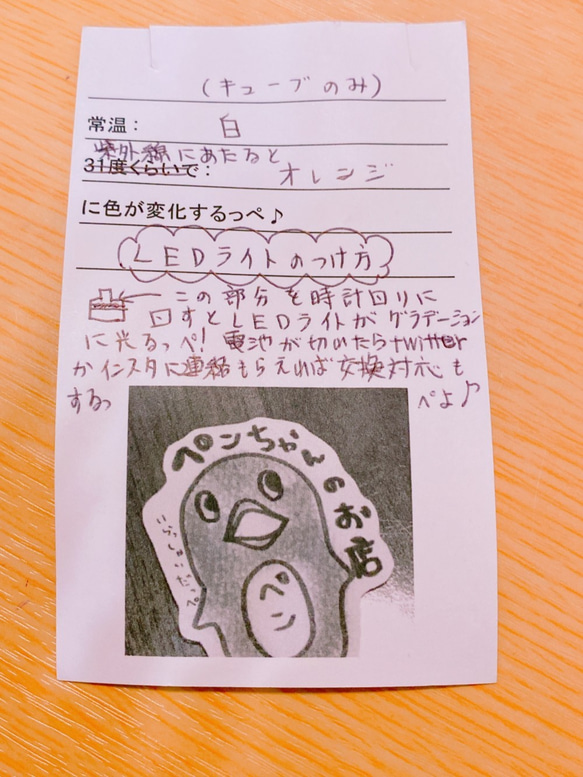 (キューブのみ)
常温: 白
紫外線にあたると
31度くらいで: オレンジ
に色が変化するっぺ♪
LEDライトのつけ方
この部分を時計回りに
回すとLEDライトがグラデーション
に光るっぺ! 電池が切れたらtwitter
かインスタに連絡もらえれば交換対応も
するっ ぺよ♪
ペンちゃんのお店
いらっしゃいだっぺ
ペン